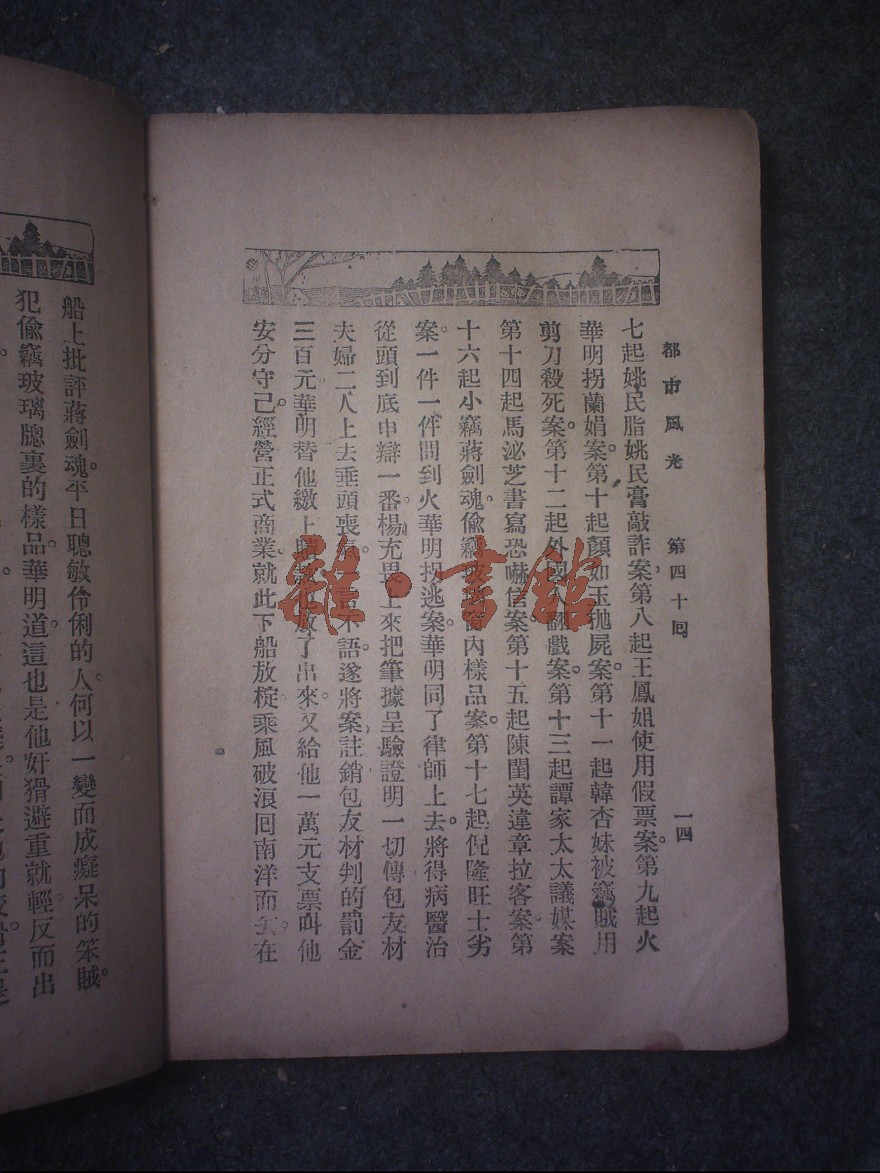 都市風光　第四十回　一四
七起姚民脂姚民膏敲詐案。第八起王鳳姐使用假票案。第九起火
華明拐蘭娟案。第十起顏如玉拋屍案。第十一起韓杏妹被竊賊用
剪刀殺死案。第十二起外國人
戲案。第十三起譚家太太議媒案
第十四起馬泌芝書寫恐嚇信案。第十五起陳閨英違章拉客案第
十六起小竊蔣劍魂。偷竊玻
內樣品案。第十七起倪隆旺士劣
案。一件一件問到火華明拐逃案。華明同了律師上去。將得病醫治
從頭到底申辯一番。楊充畏
上來把筆據呈驗證明一切。傳包友材
夫婦二人上去垂頭喪氣。
不語。遂將案註銷。包友材判的罰金
三百元。華明替他繳上
也放了出來。又給他一萬元支票叫他
安分守己。經營正式商業。就此下船放椗。乘風破浪回南洋而去。在
船上批評蔣劍魂。平日聰敏伶俐的人何以一變而成癡呆的笨賊。
犯偷竊玻璃牕裏的樣品。華明道。這也是他奸猾避重就輕。反而出
雜·書館